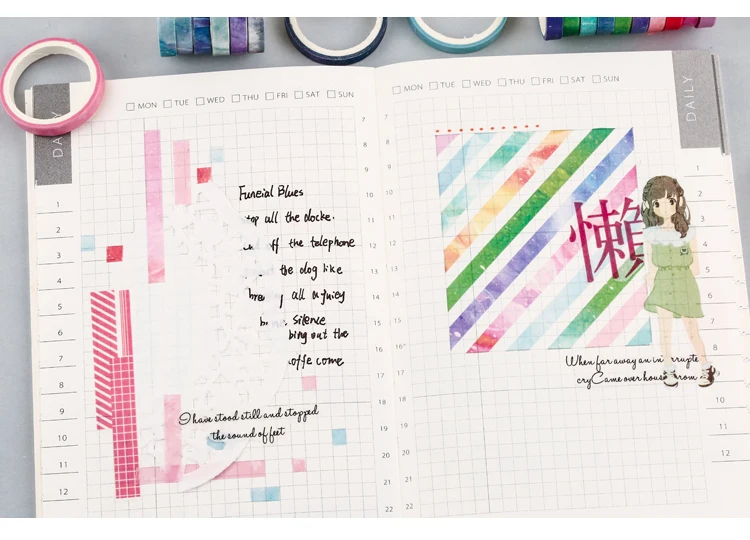 DAILY
MON TUE WED THU FRI SAT SUN
1
2
3
4
5
6
7
8
9
10
11
12
7
8
9
10
11
12
13
14
15
16
17
18
19
20
21
22
Funeial Blues
all the clocke.
the telephone
the dog like
all a juiey
silence
bing out the
come
I have stood still and stopped
the sound of feet
MON TUE WED THU FRI SAT SUN
DAILY
7
8
9
10
11
12
13
14
15
16
17
18
19
20
21
22
懶
When far away an in rrupte
cry Came over hous rom
1
2
3
4
8
10
11
12